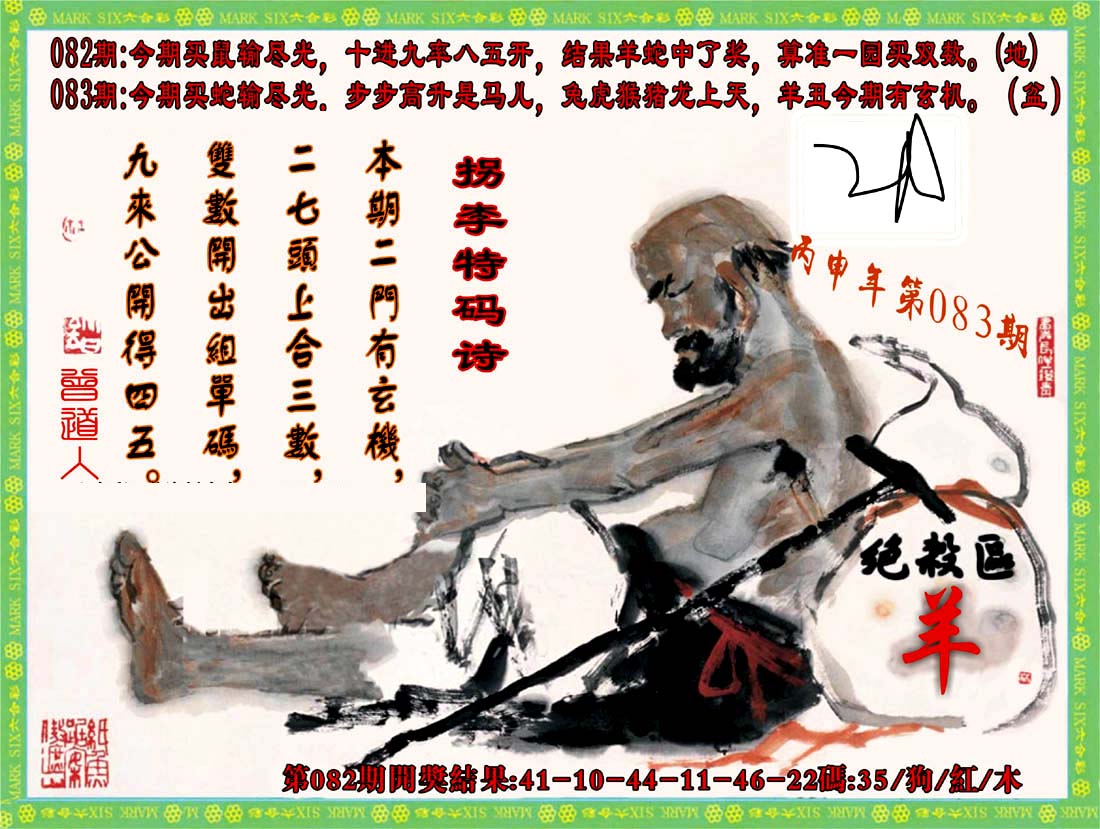 082期:今期买鼠输尽光，十进九率八五开，结果羊蛇中了奖，算准一园买双数。(地)
083期:今期买蛇输尽光．步步高升是马儿，兔虎猴猪龙上天，羊丑今期有玄机。（盆）
拐李特码诗
本期二門有玄機，
二七頭上合三數，
雙數開出組單碼，
九來公開得四五。
曾道人
丙申年第083期
绝殺區
羊
第082期開獎結果:41-10-44-11-46-22碼:35/狗/紅/木
MARK SIX六合彩